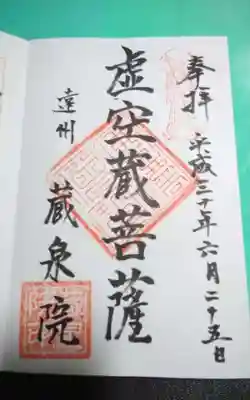 奉拝
平成三十年六月二十五日
虚空蔵菩薩
遠州
蔵泉院